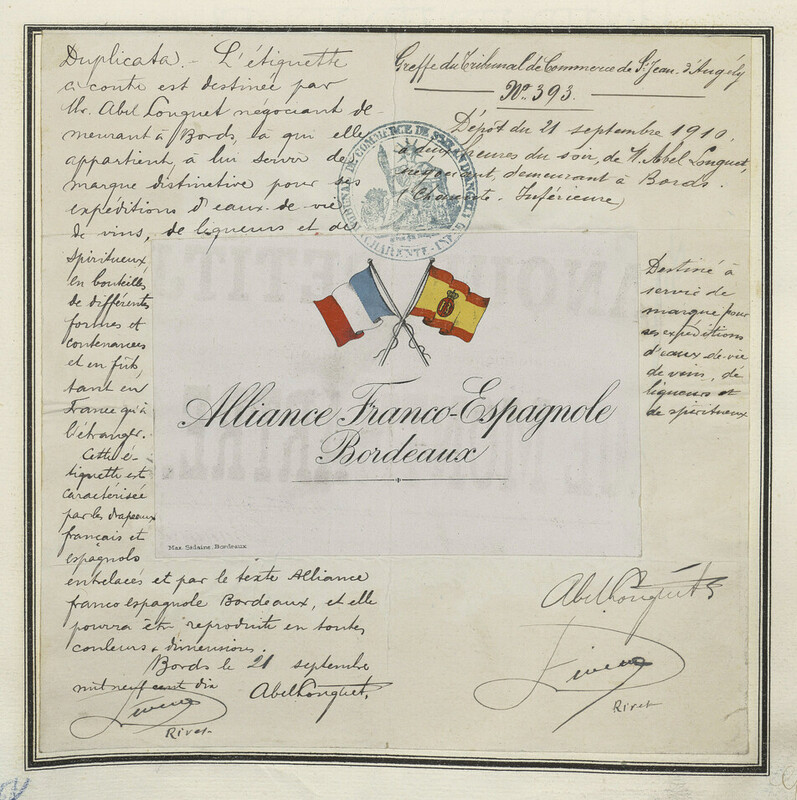 Duplicata. - L'étiquette
ci contre est destinée par
Mr. Abel Longuet négociant de-
meurant à Bords, là qui elle
appartient, à lui servir de
marque distinctive pour ses
expéditions d'eaux-de-vie
de vins, de liqueurs et de
spiritueux,
en bouteilles
de différentes
formes et
contenances
et en fûts,
tant en
France qu'à
l'étranger.
Cette é-
tiquette est
caractérisée
par les drapeaux
français et
espagnols
entrelacés et par le texte Alliance
franco espagnole Bordeaux, et elle
pourra être reproduite en toutes
couleurs & dimensions.
Bords le 21 septembre
mil neuf cent dix
Abel Longuet
Rivet
Greffe du Tribunal de Commerce de St Jean d'Angély
No. 393.
Dépôt du 21 septembre 1910,
à deux heures du soir, de M. Abel Longuet,
négociant, demeurant à Bords.
(Charente-Inférieure)
TRIBUNAL DE COMMERCE DE ST JEAN D'ANGELY
CHARENTE-INF
Alliance Franco-Espagnole
Bordeaux
Max Sédaine. Bordeaux
Destiné à
servir de
marque pour
ses expéditions
d'eaux-de-vie
de vins, de
liqueurs et
de spiritueux
Abel Longuet
Rivet